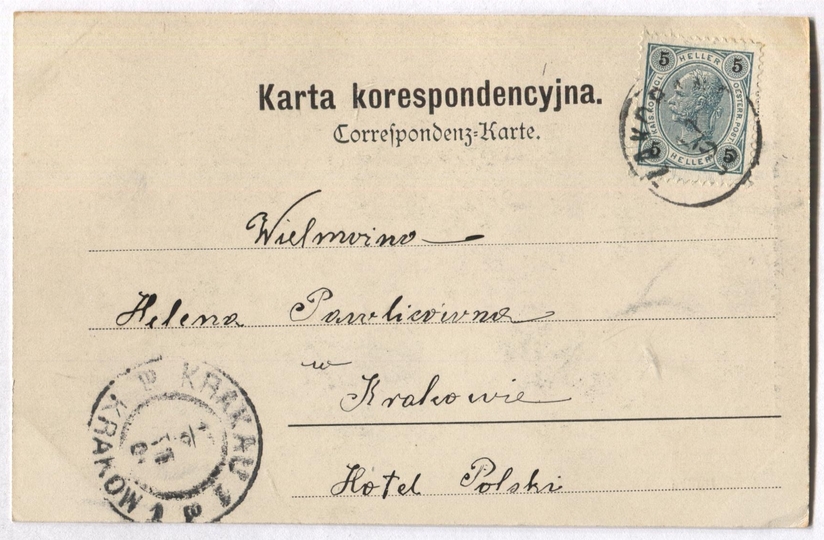 Karta korespondencyjna.
Correſpondenz-Karte.
5 HELLER 5
KAIS. KÖNIGL. OESTERR. POST
5 HELLER 5
Wielmożna
Helena Pawlicówna
w
Krakowie
Hotel Polski
KRAKAU 1
KRAKÓW 1